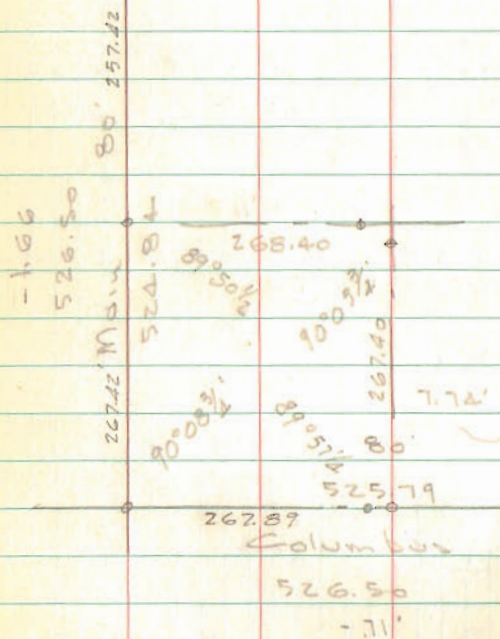 257.42
80'
-1.66
526.50
524.84
268.40
89°50½
90°03¾'
Main
267.42'
267.40
7.74'
90°08¾'
89°57¼
80
525.79
267.89
Columbus
526.50
-.71'